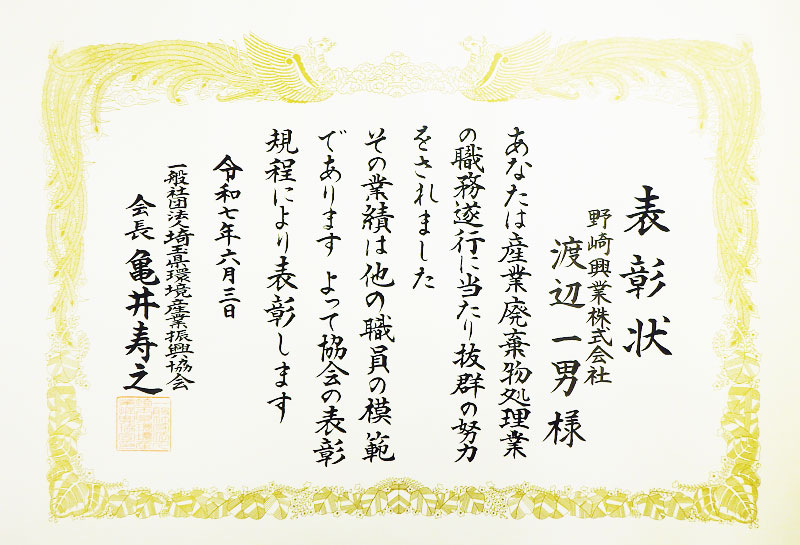 表彰状
野崎興業株式会社
渡辺一男様
あなたは産業廃棄物処理業
の職務遂行に当たり抜群の努力
をされました
その業績は他の職員の模範
であります よって協会の表彰
規程により表彰します
令和七年六月三日
一般社団法人埼玉県環境産業振興協会
会長 亀井寿之